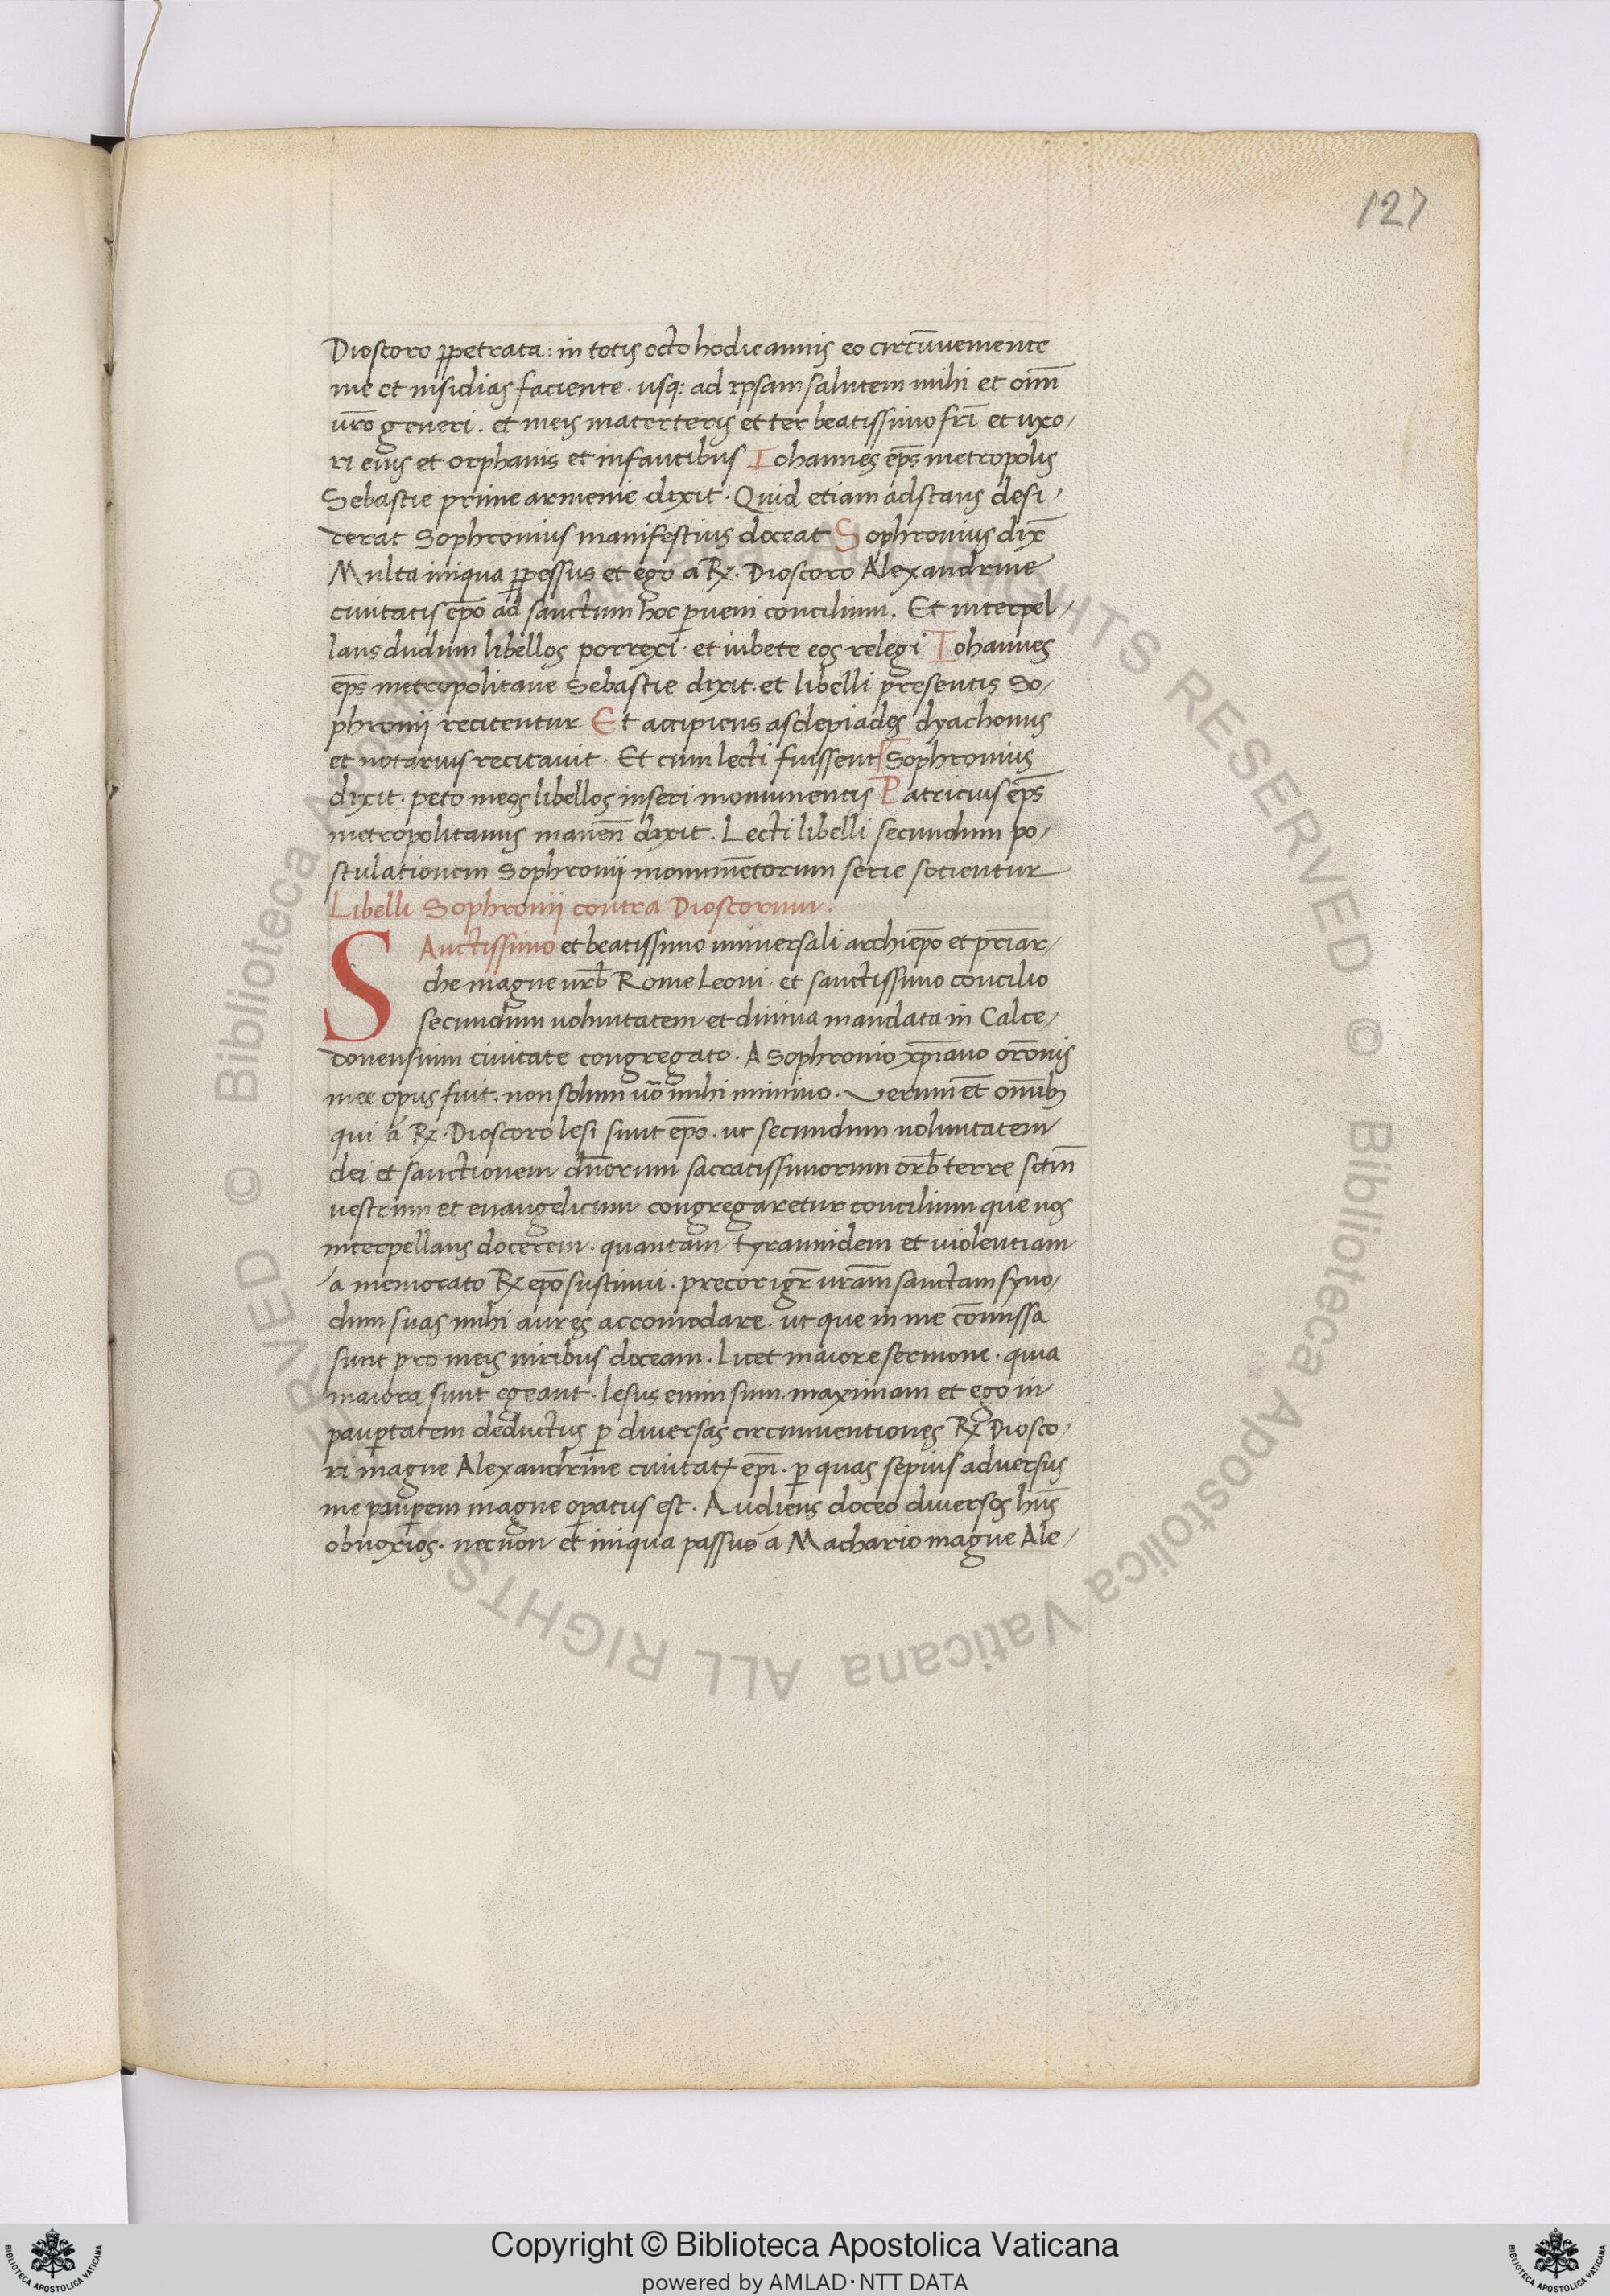 127
Dioscoro ꝑpetrata: in totis octo hodie annis eo circūueniente
me et insidias faciente. usq: ad ipsam salutem mihi et omī
ur̄o generi. et meis materteris et ter beatissimo fr̄i et uxo/
ri eius et orphanis et infantibus Iohannes ep̄s metropolis
Sebastie prime armenie dixit. Quid etiam adstans desi/
derat Sophronius manifestius doceat Sophronius dix̄
Multa iniqua ꝑpessus et ego a R℞. Dioscoro Alexandrine
ciuitatis ep̄o ad sanctum hoc ꝑueni concilium. Et interpel/
lans dudum libellos porrexi. et iubete eos relegi Iohannes
ep̄s metropolitane Sebastie dixit. et libelli presentis So/
phronij recitentur Et accipiens asclepiades dyachonus
et notarius recitauit. Et cum lecti fuissent Sophronius
dixit. peto meos libellos inseri monumentis Patricius ep̄s
metropolitanus manēn dixit. Lecti libelli secundum po/
stulationem Sophronij monumētorum serie socientur
Libelli Sophronij contra Dioscorum.
SAnctissimo et beatissimo uniuersali archiep̄o et pr̄iar/
che magne urb̄ Rome Leoni. et sanctissimo concilio
secundum uoluntatem et diuina mandata in Calce/
donensium ciuitate congregato. A Sophronio xp̄iano or̄onis
mee opus fuit. non solum uō mihi minimo. Verum et̄ omīb
qui a R℞. Dioscoro lesi sunt ep̄o. ut secundum uoluntatem
dei et sanctionem dn̄orum sacratissimorum orb̄ terre sctm̄
uestrum et euangelicum congregaretur concilium que uos
interpellans docerem. quantam tyrannidem et uiolentiam
a memorato R℞ ep̄o sustinui. precor igr̄ ur̄am sanctam syno/
dum suas mihi aures accomodare. ut que in me cōmissa
sunt pro meis uiribus doceam. Licet maiore sermone. quia
maiora sunt egeant. lesus enim sum maximam et ego in
pauꝑtatem deductus ꝑ diuersas circumuentiones R℞ Diosco/
ri magne Alexandrine ciuitat ep̄i. ꝑ quas sepius aduersus
me pauꝑem magne oꝑatus est. Audiens doceo diuersos hn̄s
obnoxios. necnon et iniqua passus a Machario magne Ale/
Copyright © Biblioteca Apostolica Vaticana
powered by AMLAD·NTT DATA